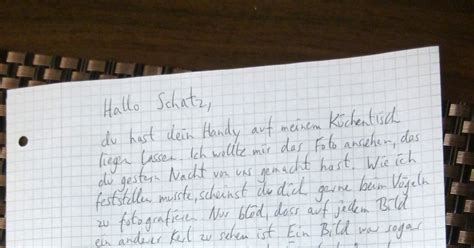 Hallo Schatz,
du hast dein Handy auf meinem Küchentisch
liegen lassen. Ich wollte mir das Foto ansehen, das
du gestern Nacht von uns gemacht hast. Wie ich
feststellen musste, scheinst du dich gerne beim Vögeln
zu fotografieren. Nur blöd, dass auf jedem Bild
ein anderer Kerl zu sehen ist. Ein Bild war sogar